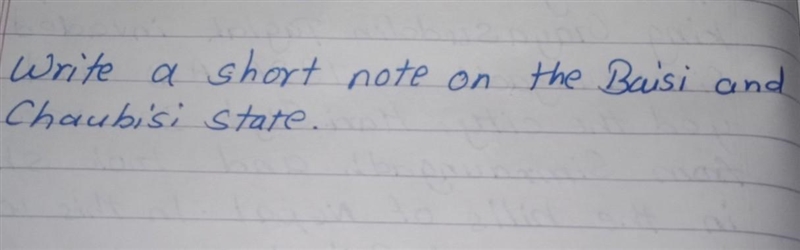 Write a short note on the Baisi and
Chaubisi state.